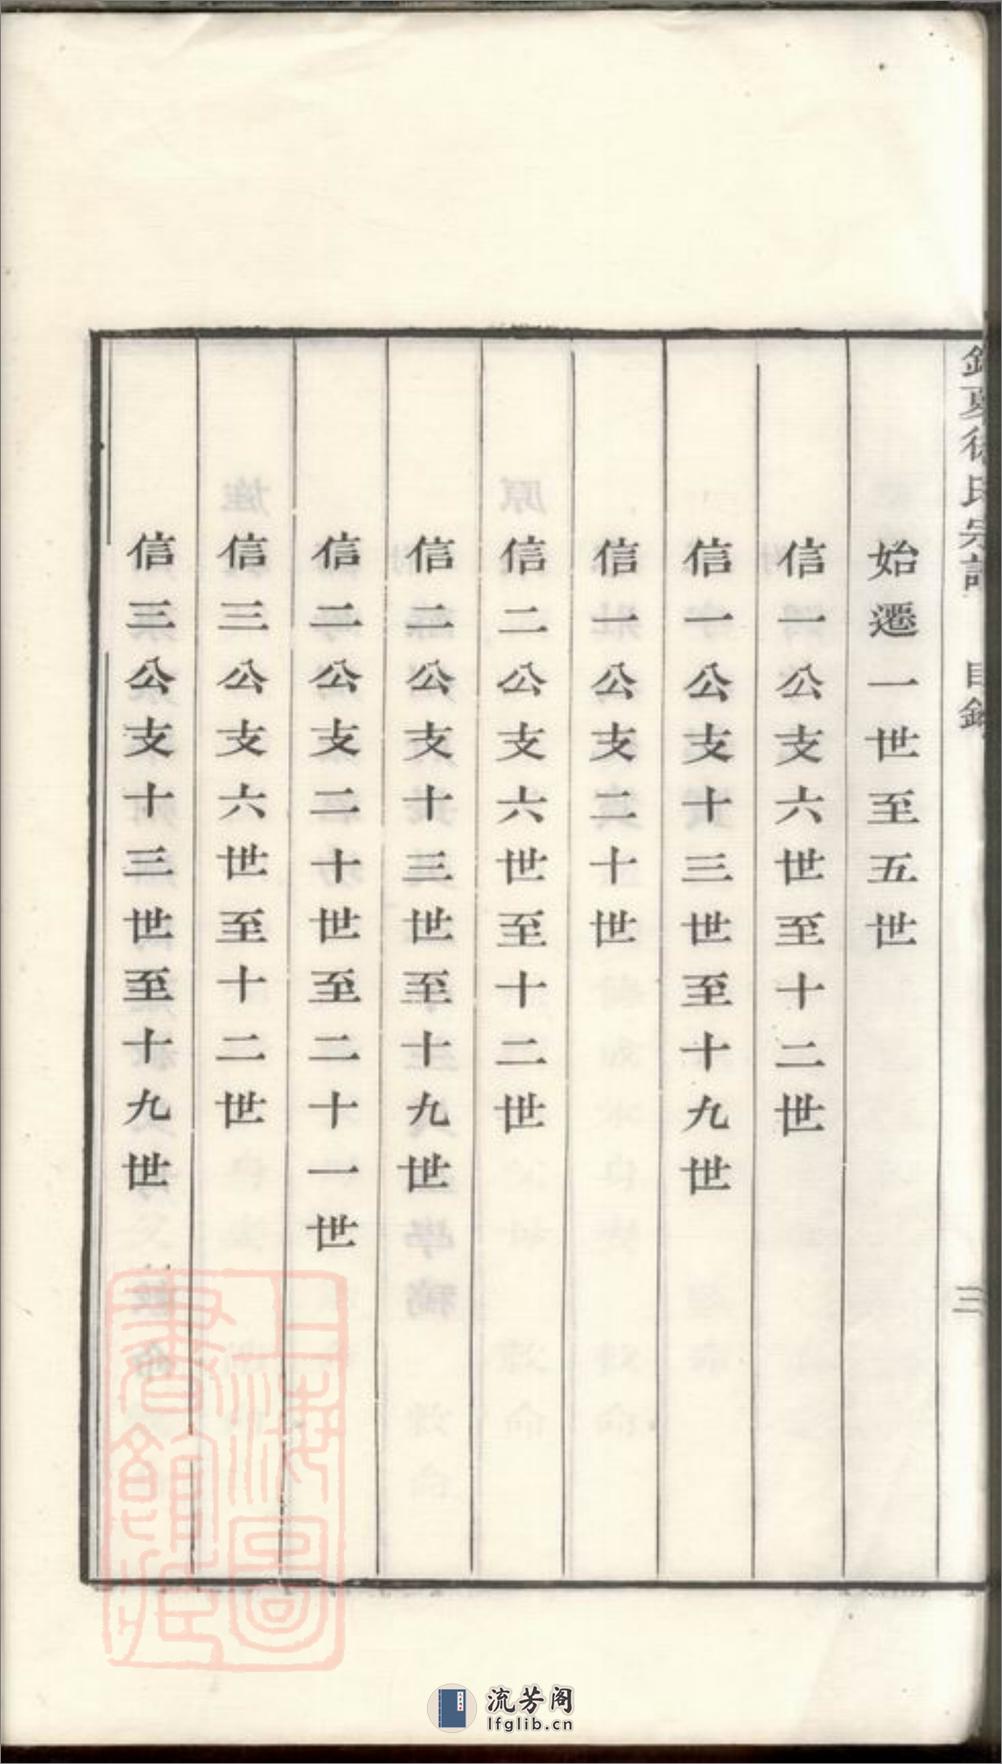 夏徐氏宗譜 目錄 三
始遷一世至五世
信一公支六世至十二世
信一公支十三世至十九世
信一公支二十世
信二公支六世至十二世
信二公支十三世至十九世
信二公支二十世至二十一世
信三公支六世至十二世
信三公支十三世至十九世
上海圖書館藏
流芳阁
lfglib.cn